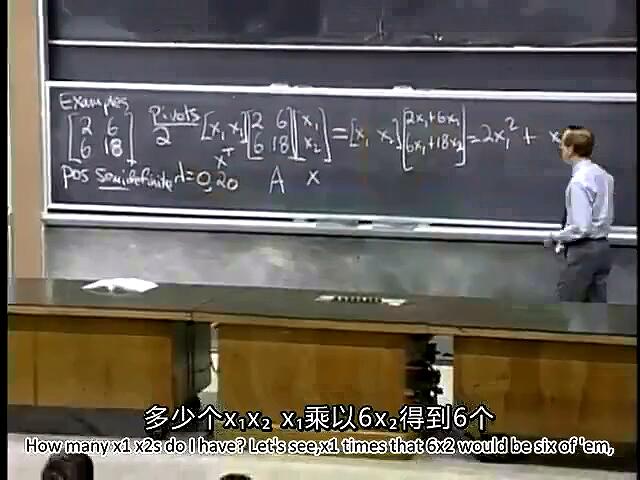 Examples
[2 6
6 18]
Pivots
2
[x₁ x₁] [2 6
6 18] [x₁
x₂] = [x₁ x₂] [2x₁+6x₁
6x₁+18x₂] = 2x₁² + x
xᵀ A x
pos semidefinite λ=0,20
多少个x₁x₂ x₁乘以6x₂得到6个
How many x1 x2s do I have? Let's see,x1 times that 6x2 would be six of 'em,